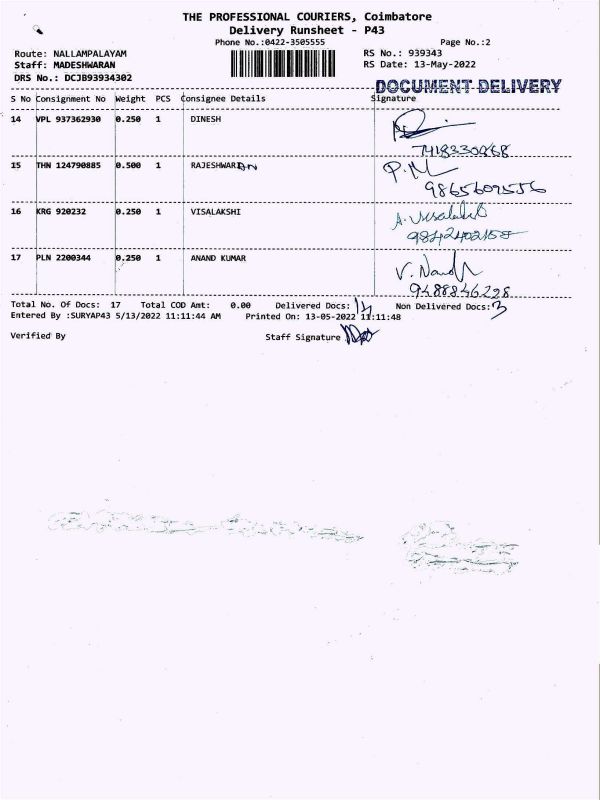 THE PROFESSIONAL COURIERS, Coimbatore
Delivery Runsheet - P43
Phone No.:0422-3505555 Page No.:2
Route: NALLAMPALAYAM RS No.: 939343
Staff: MADESHWARAN RS Date: 13-May-2022
DRS No.: DCJB93934302
DOCUMENT DELIVERY
S No Consignment No Weight PCS Consignee Details Signature
14 VPL 937362930 0.250 1 DINESH
15 THN 124790885 0.500 1 RAJESHWARI
P.M
9865609556
16 KRG 920232 0.250 1 VISALAKSHI
A. Visalakshi
9842402158
17 PLN 2200344 0.250 1 ANAND KUMAR
V. Nandh
9488846228
Total No. Of Docs: 17 Total COD Amt: 0.00 Delivered Docs: 14 Non Delivered Docs: 3
Entered By :SURYAP43 5/13/2022 11:11:44 AM Printed On: 13-05-2022 11:11:48
Verified By Staff Signature